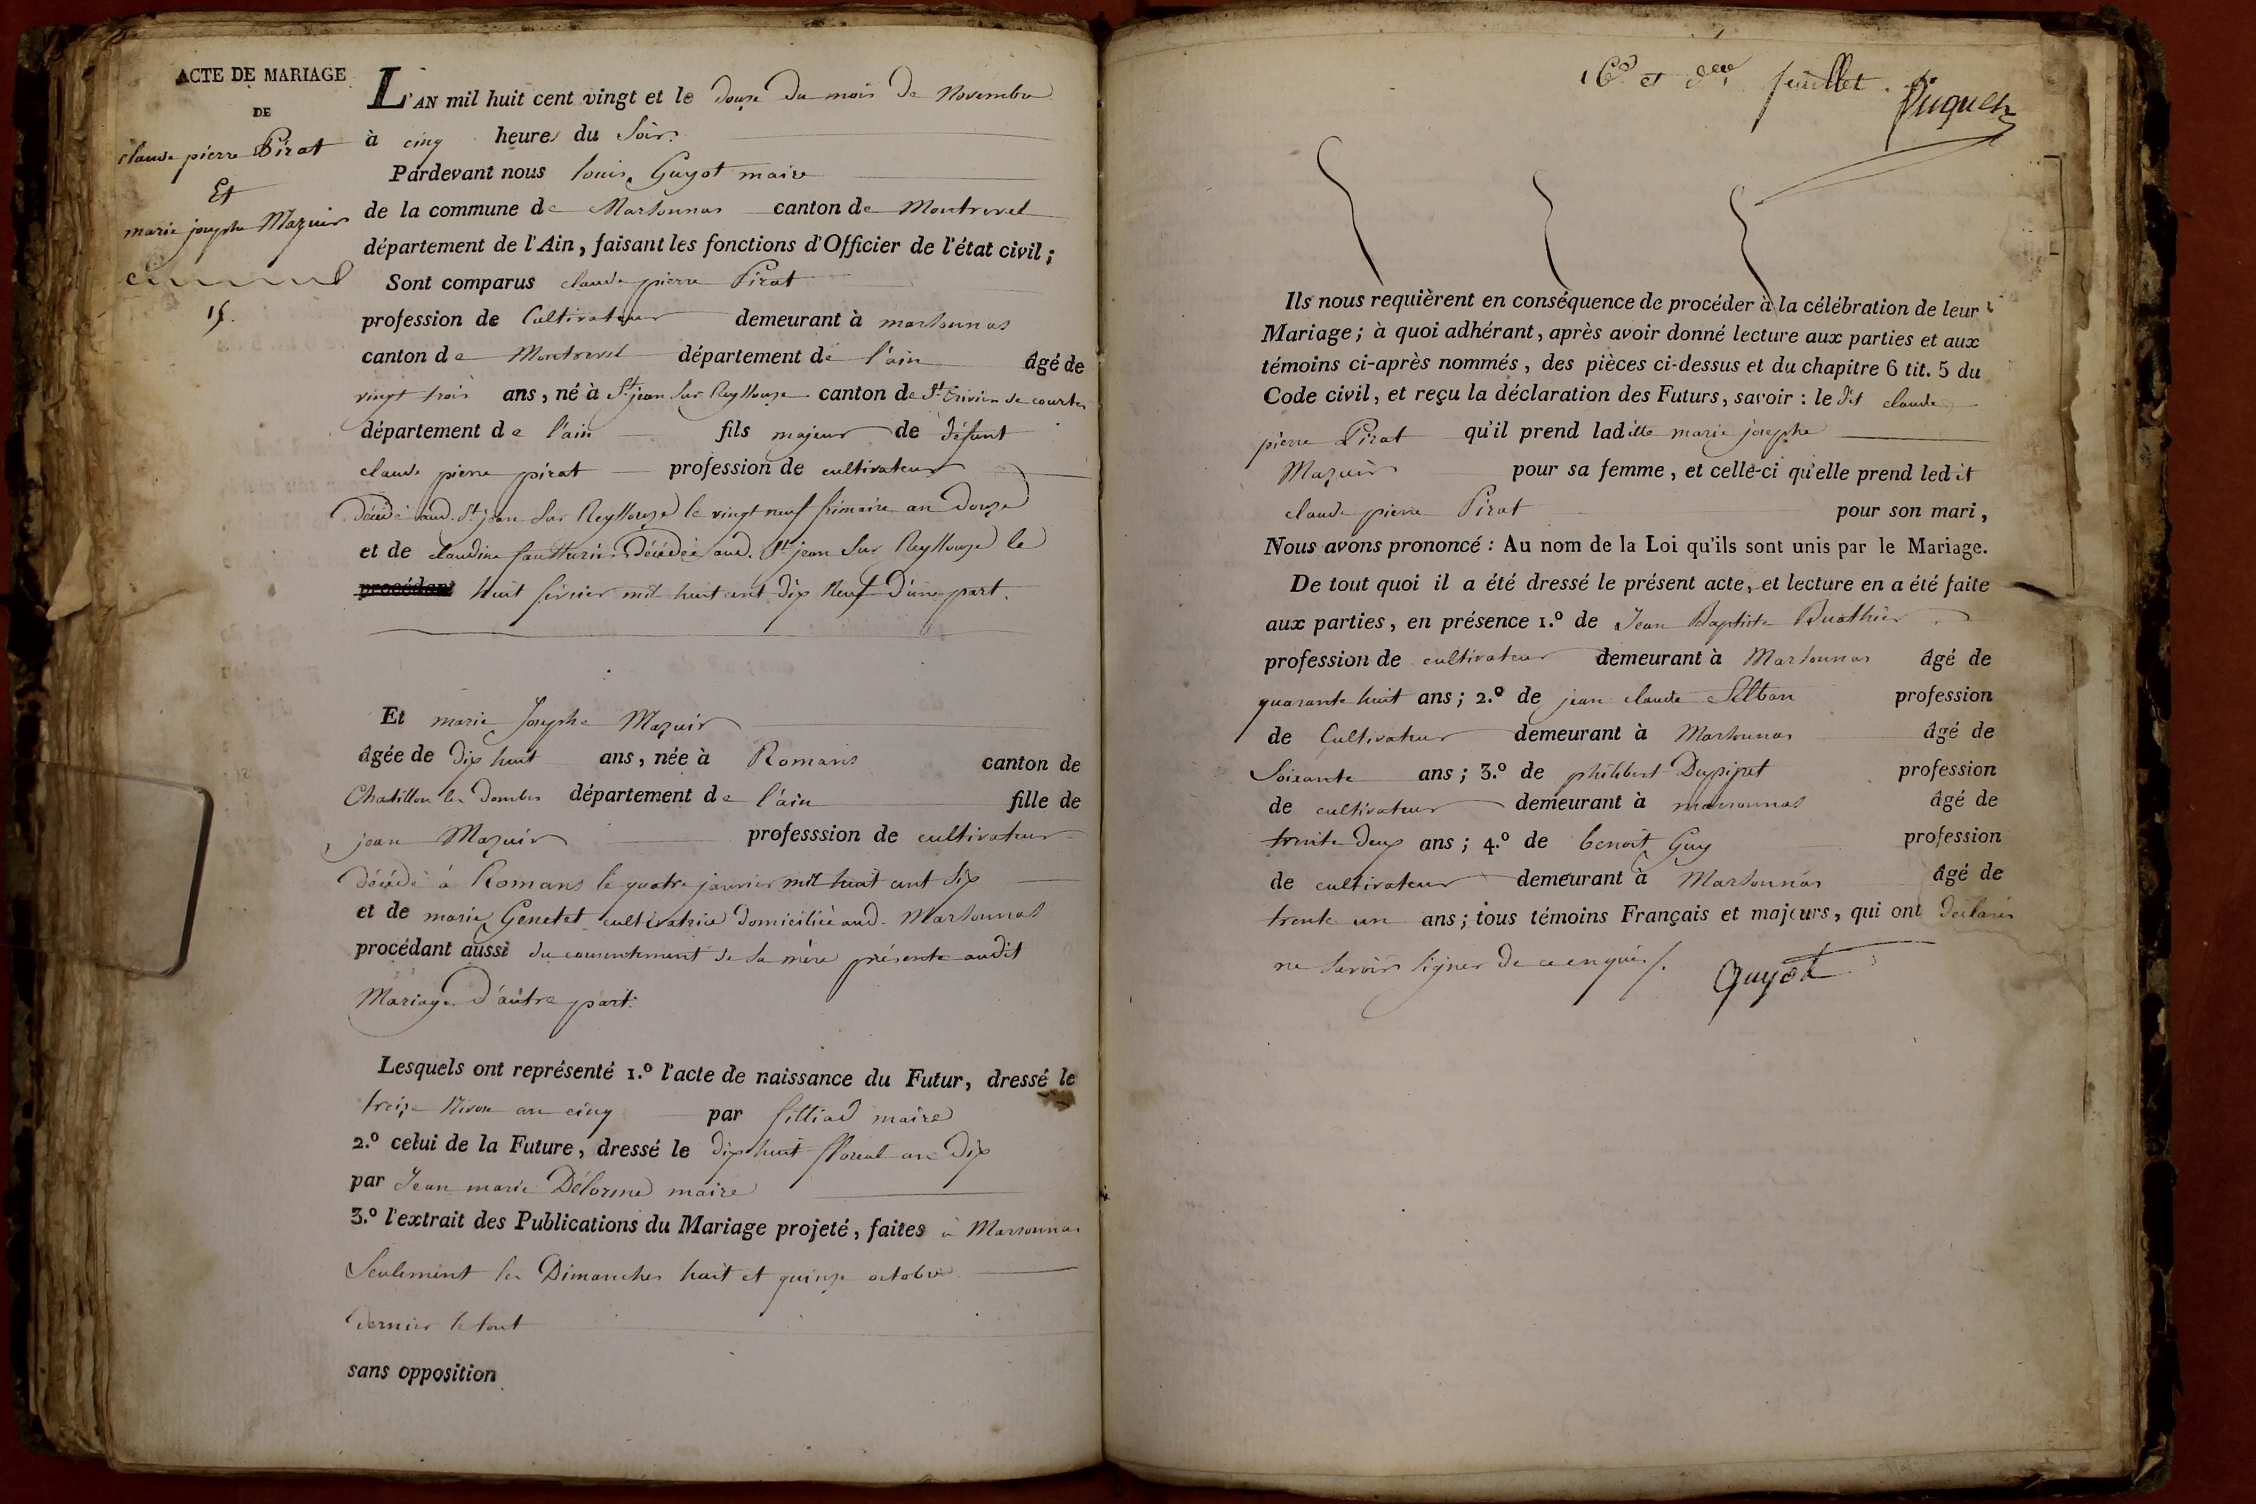 ACTE DE MARIAGE
DE
claude pierre Pirat
Et
marie josephe Mazuir
15.
L'AN mil huit cent vingt et le douze du mois de Novembre
à cinq heures du Soir.
Pardevant nous louis Guyot maire
de la commune de Marsonnas canton de Montrevel
département de l'Ain, faisant les fonctions d'Officier de l'état civil;
Sont comparus claude pierre Pirat
profession de Cultivateur demeurant à marsonnas
canton de Montrevel département de l'ain âgé de
vingt trois ans, né à St jean Sur Reyssouze canton de St trivier de courtes
département de l'ain fils majeur de défunt
claude pierre pirat profession de cultivateur
Décédé aud. St jean Sur Reyssouze le vingt neuf frimaire an Douze
et de claudine Décédée aud. St jean Sur Reyssouze le
procédant huit février mil huit cent dix Neuf D'une part.
Et marie Josephe Mazuir
âgée de Dix huit ans, née à Romans canton de
Chatillon les Dombes département de l'ain fille de
jean Mazuir professsion de cultivateur
Décédé à Romans le quatre janvier mil huit cent Six
et de marie Genetet cultivatrice Domiciliée aud. Marsonnas
procédant aussi du consentement de Sa mère présente audit
Mariage D'autre part.
Lesquels ont représenté 1.º l'acte de naissance du Futur, dressé le
treize Nivose an cinq par maire
2.º celui de la Future, dressé le Dix huit floreal an Dix
par Jean marie Délorme maire
3.º l'extrait des Publications du Mariage projeté, faites à Marsonnas
Seulement les Dimanches huit et quinze octobre
Dernier le tout
sans opposition
16e et der feuillet.
Ils nous requièrent en conséquence de procéder à la célébration de leur
Mariage; à quoi adhérant, après avoir donné lecture aux parties et aux
témoins ci-après nommés, des pièces ci-dessus et du chapitre 6 tit. 5 du
Code civil, et reçu la déclaration des Futurs, savoir : le dit claude
pierre Pirat qu'il prend ladite marie josephe
Mazuir pour sa femme, et celle-ci qu'elle prend ledit
claude pierre Pirat pour son mari,
Nous avons prononcé : Au nom de la Loi qu'ils sont unis par le Mariage.
De tout quoi il a été dressé le présent acte, et lecture en a été faite
aux parties, en présence 1.º de Jean Baptiste Buathier
profession de cultivateur demeurant à Marsonnas âgé de
quarante huit ans; 2.º de jean claude profession
de Cultivateur demeurant à Marsonnas âgé de
Soixante ans; 3.º de philibert profession
de cultivateur demeurant à marsonnas âgé de
trente Deux ans; 4.º de benoit Guy profession
de cultivateur demeurant à Marsonnas âgé de
trente un ans; tous témoins Français et majeurs, qui ont déclarés
ne Savoir Signer de ce enquis/.
Guyot